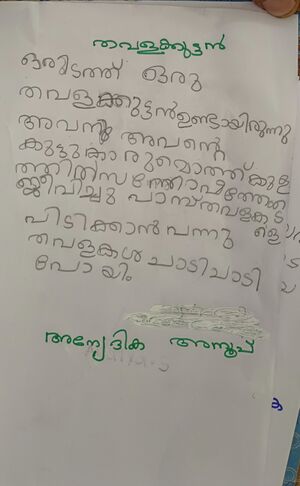 തവളക്കുട്ടൻ
ഒരിടത്ത് ഒരു
തവളക്കുട്ടൻ ഉണ്ടായിരുന്നു
അവനു അവന്റെ
കുട്ടുകാരുമൊത്ത് കുള
ത്തിൽ സന്തോഷത്തോടെ
ജീവിച്ചു പാമ്പ് തവളകട
ളെ
പിടിക്കാൻ വന്നു
തവളകൾ ചാടിചാടി
പോയി.
അന്വേദിക അനൂപ്
ക